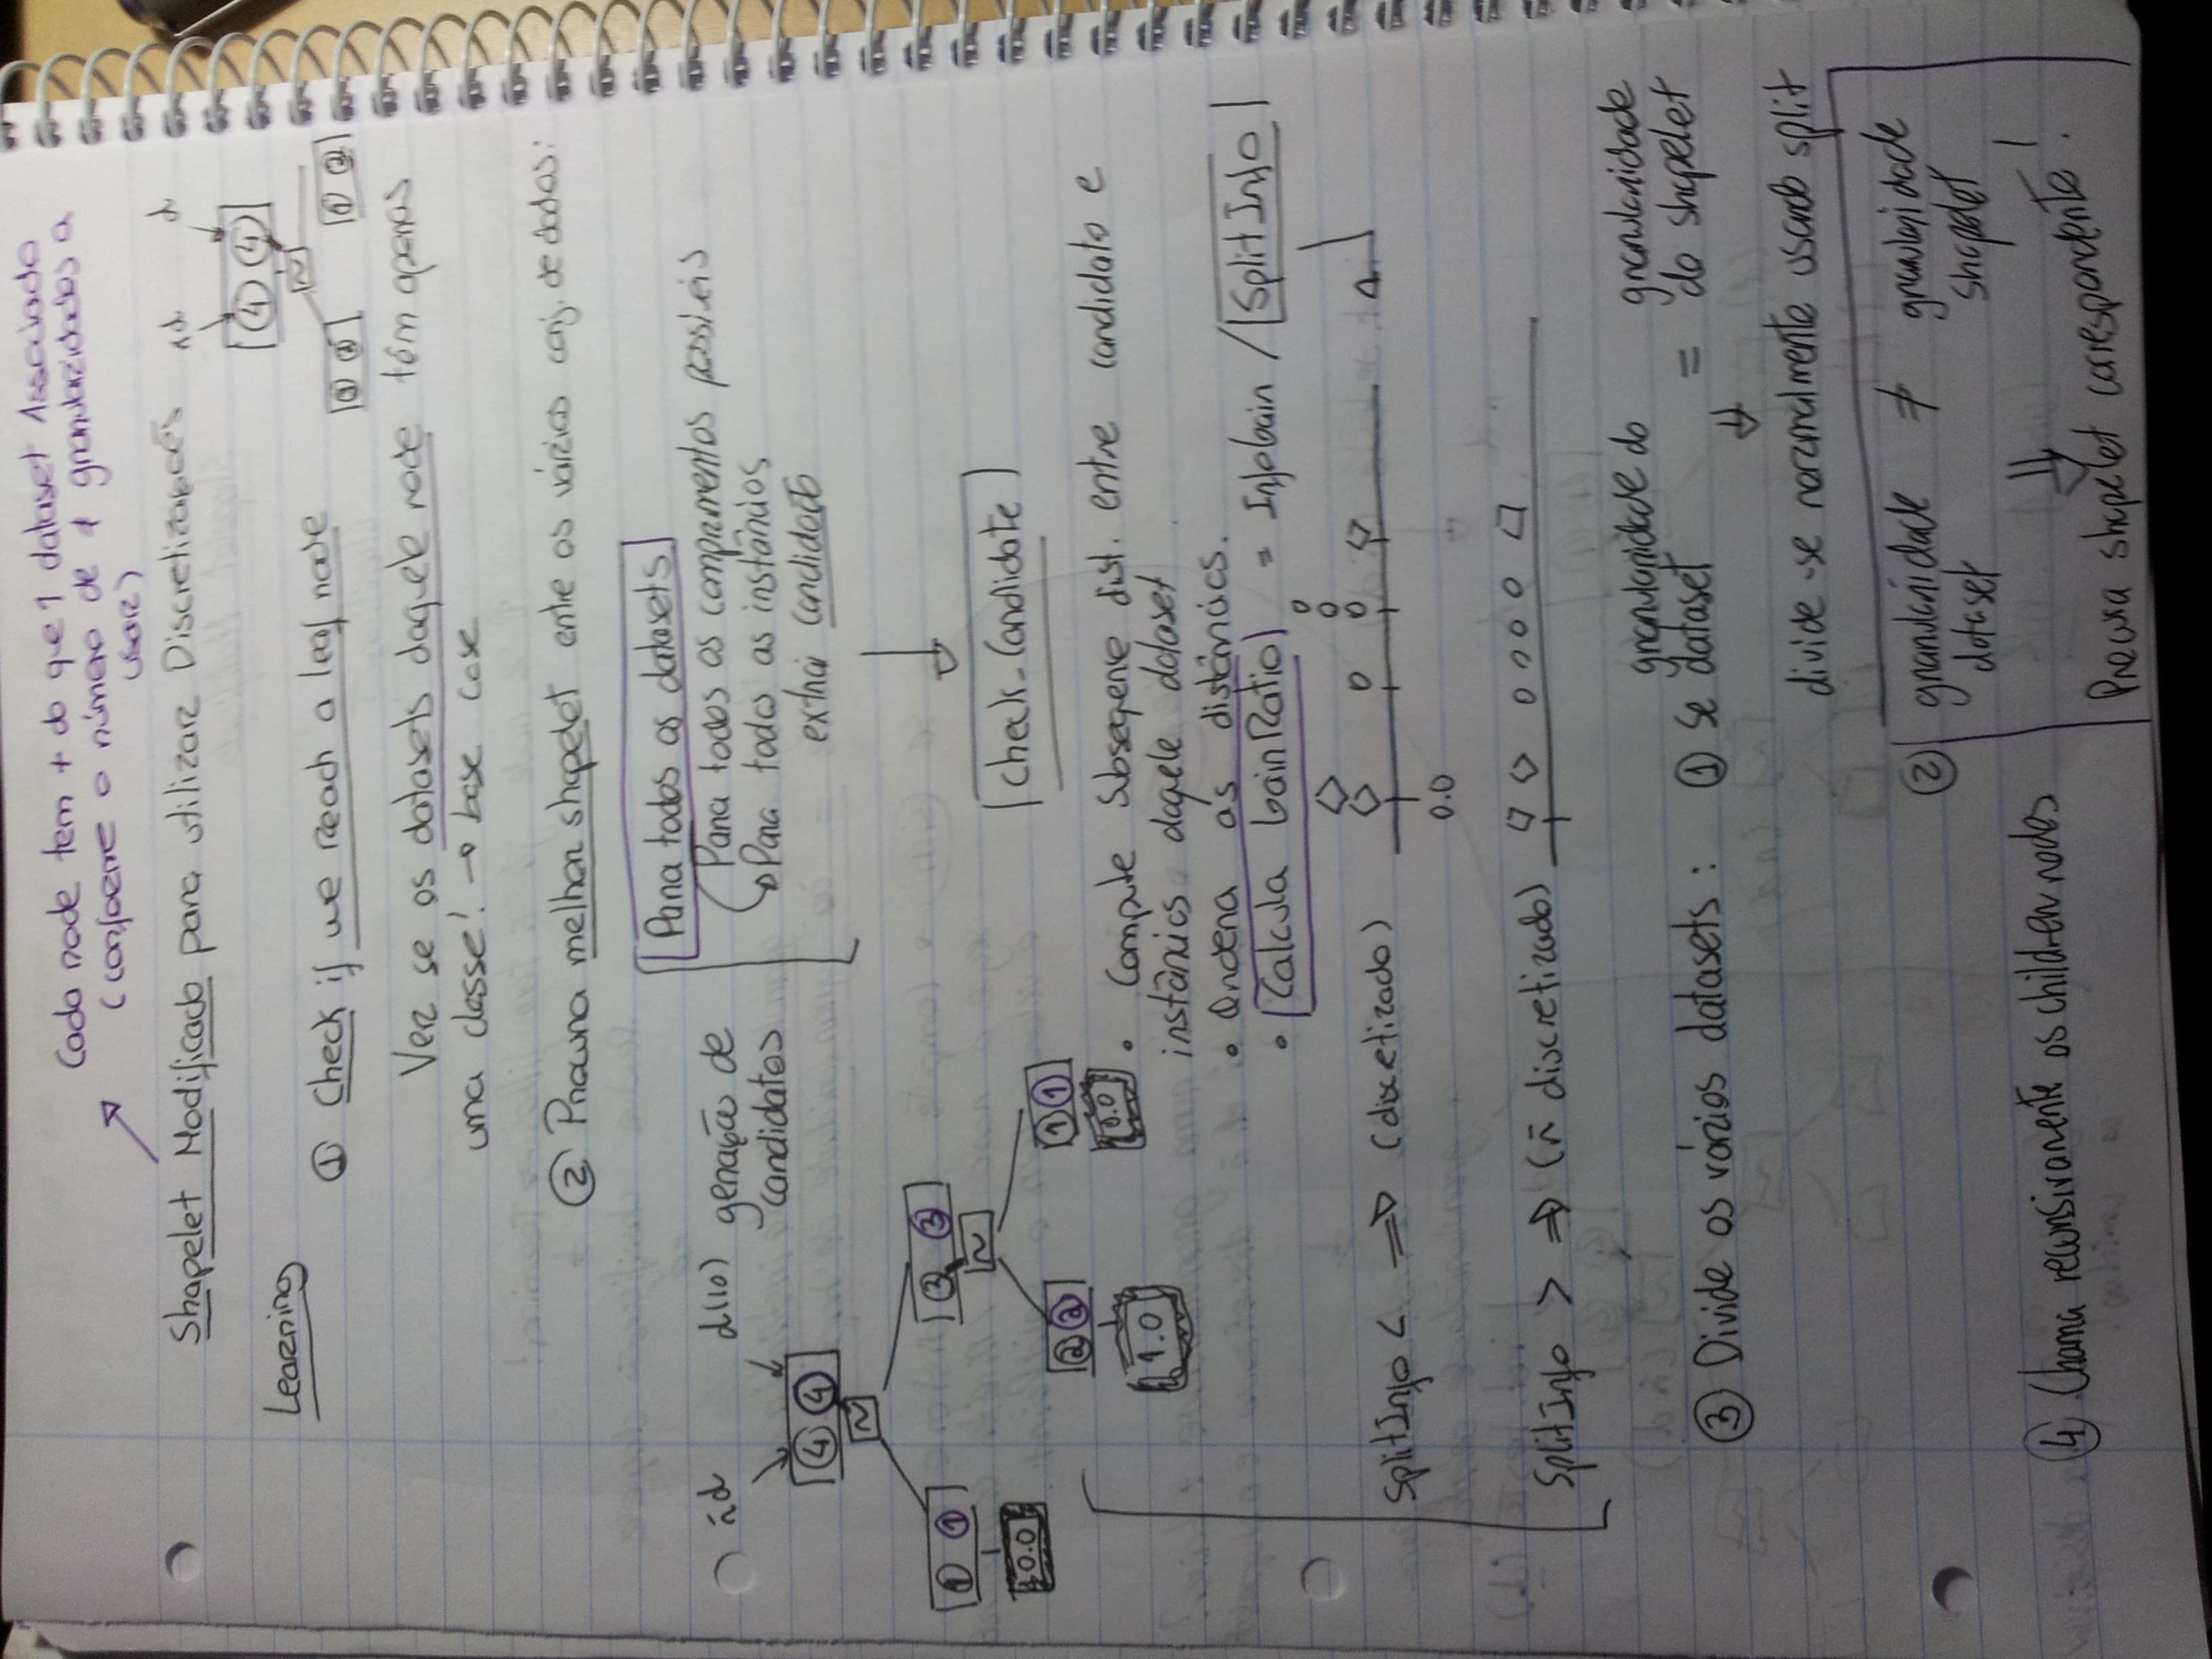 Cada node tem + do que 1 dataset Associado
(conforme o número de ≠ granularidades a
usar)
Shapelet Modificado para utilizar Discretizações
ñd d
4 4
~
3 2 1 2
Learning
① Check if we reach a leaf node
Ver se os datasets daquele node têm apenas
uma classe! → base case
② Procura melhor shapelet entre os vários conj. de dados:
ñd d(10) geração de
candidatos
Para todos os datasets
Para todos os comprimentos possíveis
Para todas as instâncias
extrai candidato
4 4
~
1 1 3 3
0.0 ~
2 2 1 1
1.0 0.0
Check_Candidate
• Compute Subsequence dist. entre candidato e
instâncias daquele dataset
• Ordena as distâncias.
• Calcula GainRatio = InfoGain / SplitInfo
SplitInfo < ⇒ (discetizado)
0.0
SplitInfo > ⇒ (ñ discretizado)
③ Divide os vários datasets: ① Se granularidade do dataset = granularidade do shapelet
⇓
divide-se normalmente usando split
② granularidade dataset ≠ granularidade shapelet
⇓
Procura shapelet correspondente!
④ Chama recursivamente os children nodes